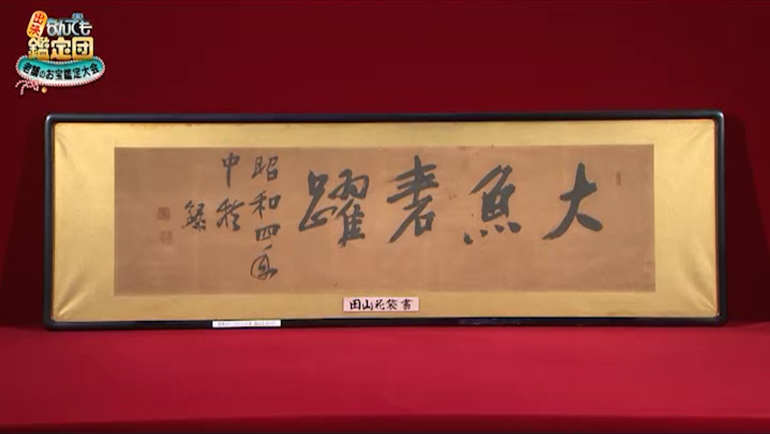 出張
なんでも
鑑定団
老舗のお宝鑑定大会
大魚躍
昭和四年
中秋
録
田山花袋書